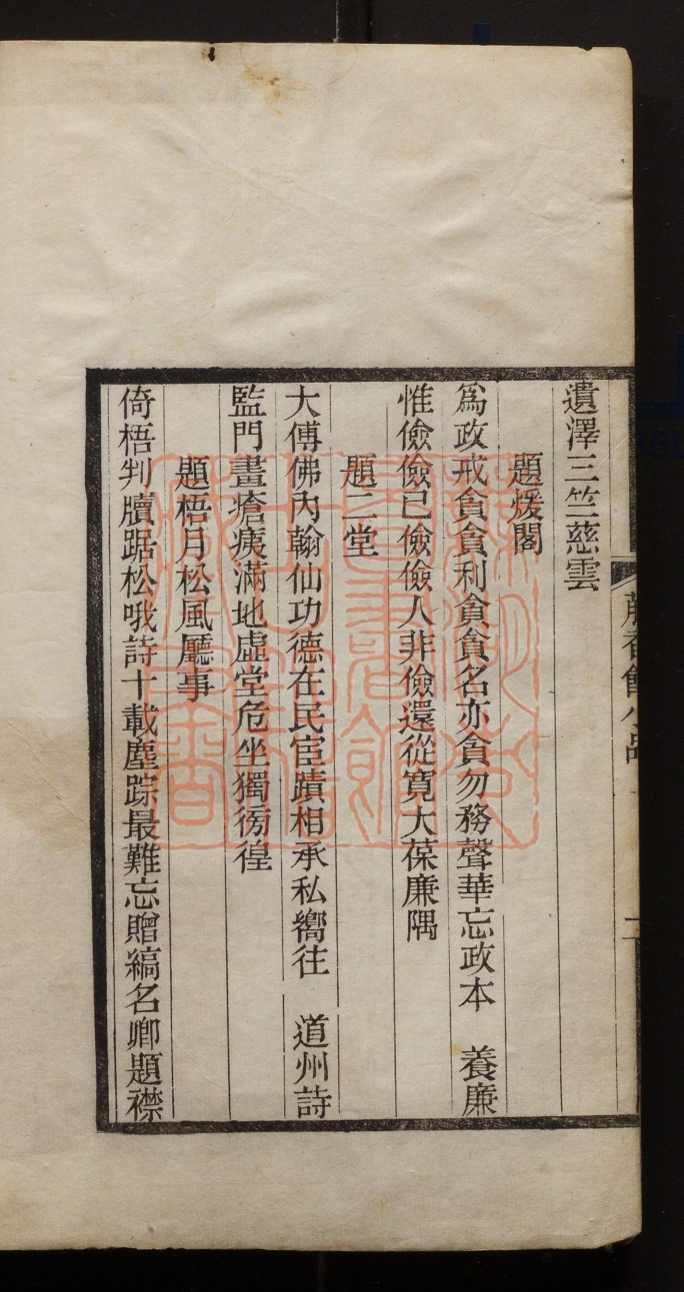 遺澤三竺慈雲
題煖閣
爲政戒貪貪利貪貪名亦貪勿務聲華忘政本　養廉
惟儉儉己儉儉人非儉還從寬大葆廉隅
題二堂
大傅佛內翰仙功德在民宦蹟相承私嚮往　道州詩
監門畫瘡痍滿地虛堂危坐獨徬徨
題梧月松風廳事
倚梧判牘踞松哦詩十載塵踪最難忘贈縞名卿題襟